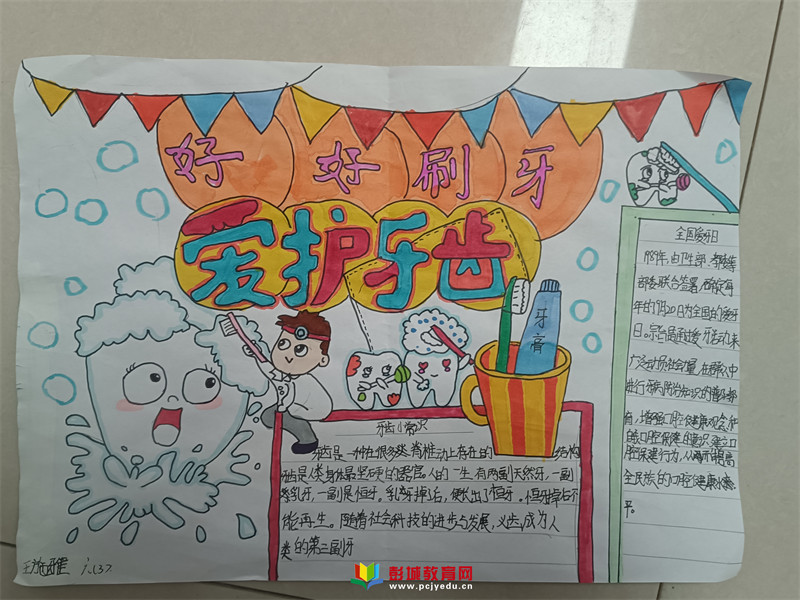 好好刷牙
爱护牙齿
牙膏
全国爱牙日
部委联合签署,确定每
年的9月20日为全国的爱牙
日。宗旨是通过爱牙活动来
广泛动员社会力量,在群众中
进行
口腔健康观念
口腔保健的意识 建立口
腔保健行为,从而提高
全民族的口腔健康水
平。
牙齿小常识
牙齿是一种在很多类脊椎动上存在的 结构
牙齿是人类身体最坚硬的器官。人的一生有两副天然牙,一副
是乳牙,一副是恒牙。乳牙掉后,便长出了恒牙。但恒牙掉后不
能再生。随着社会科技的进步与发展,义齿成为人
类的第三副牙
六(3)
彭城教育网
www.pcjyedu.cn